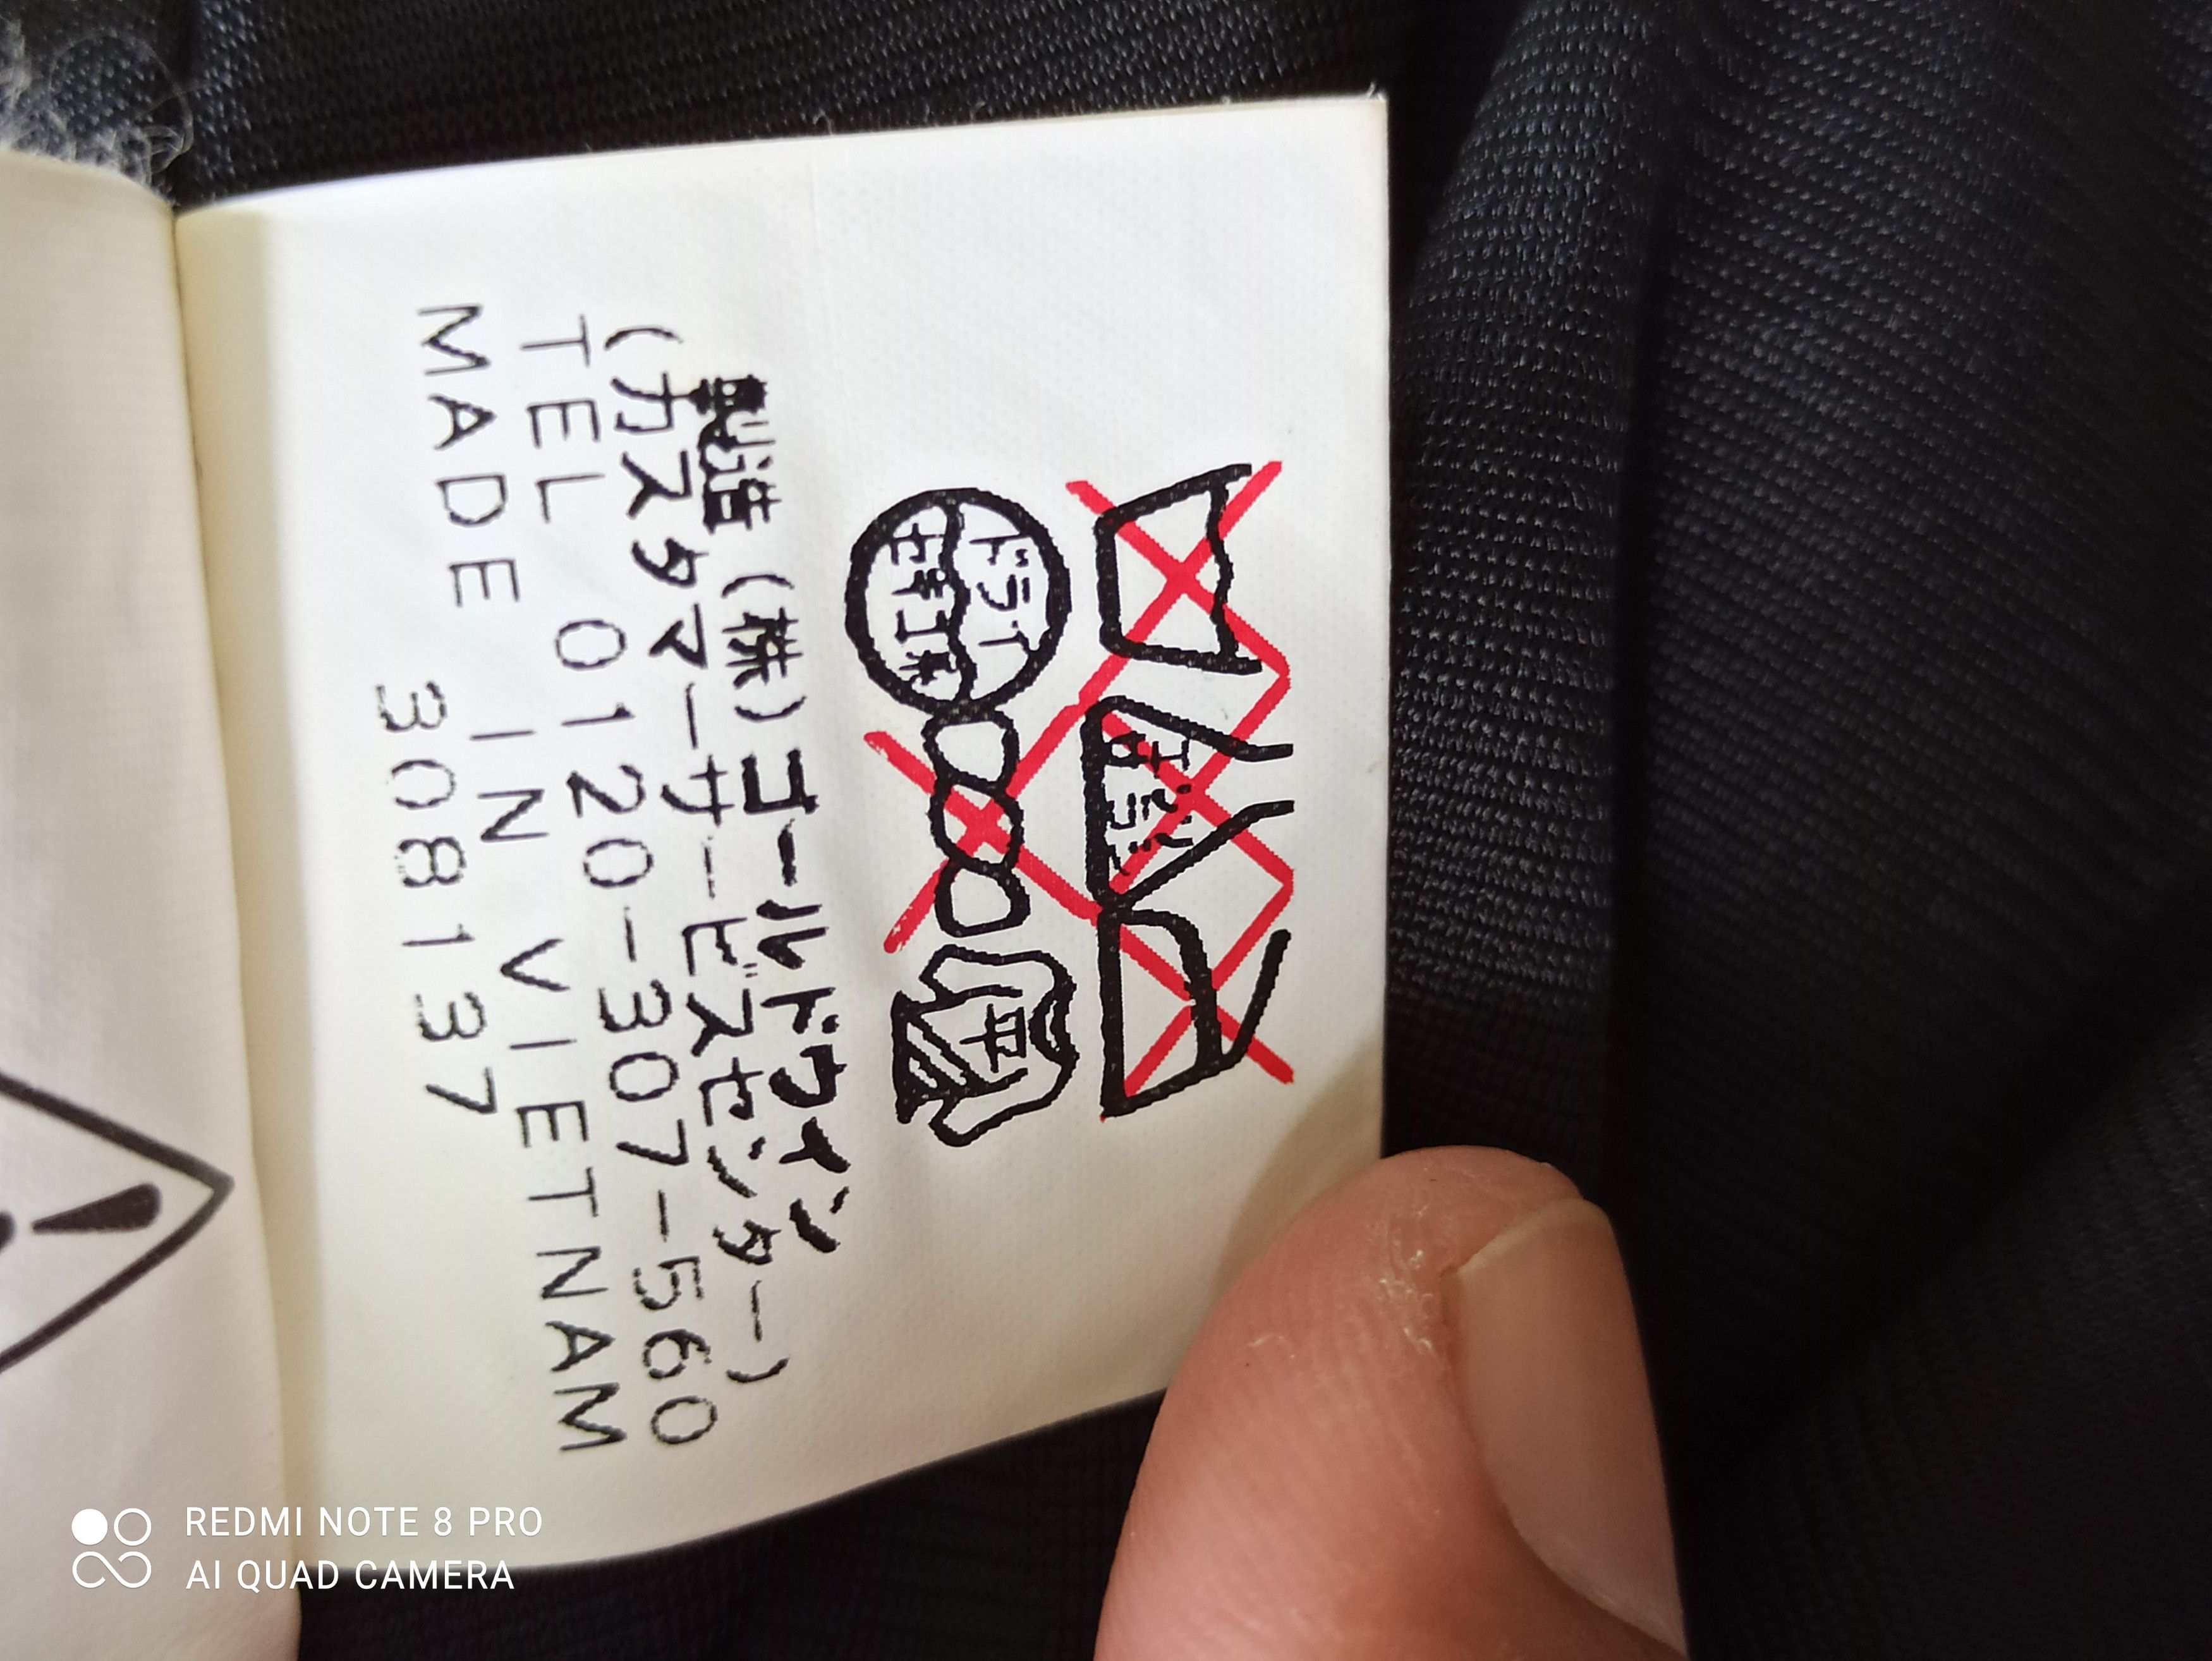 エンソ
サラシ
ドライ
セキユ系
平
製造(株)ゴールドウイン
(カスタマーサービスセンター)
TEL 0120-307-560
MADE IN VIETNAM
308137
REDMI NOTE 8 PRO
AI QUAD CAMERA